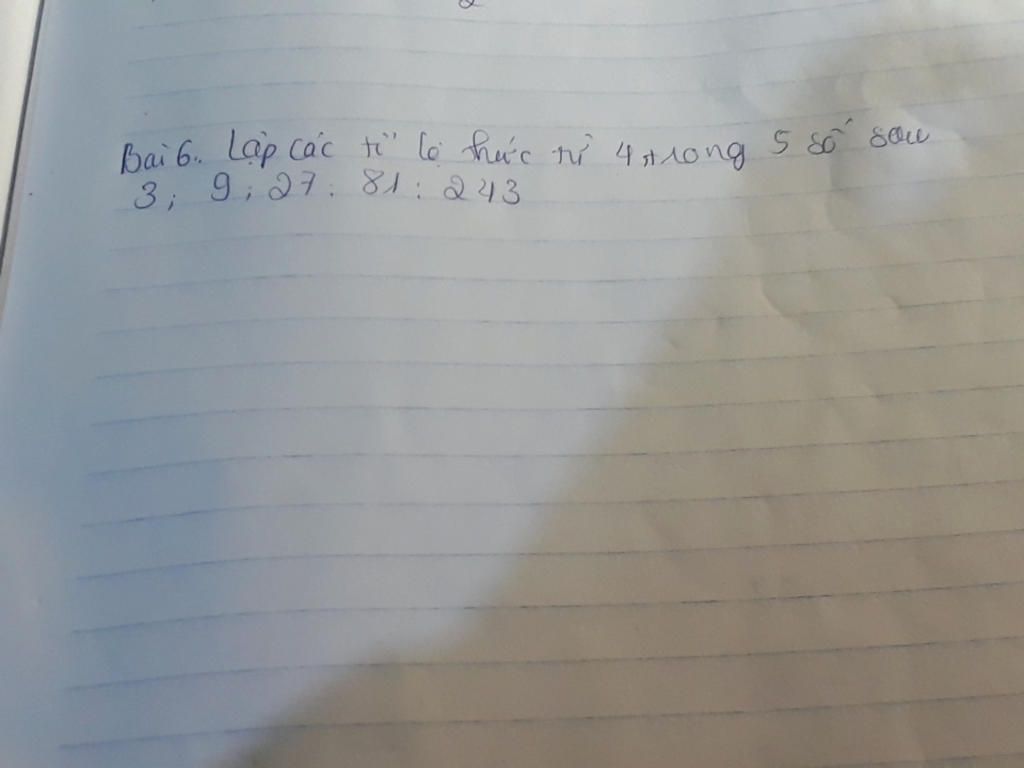 Bài 6. Lập các tỉ lệ thức từ 4 trong 5 số sau
3; 9; 27; 81; 243